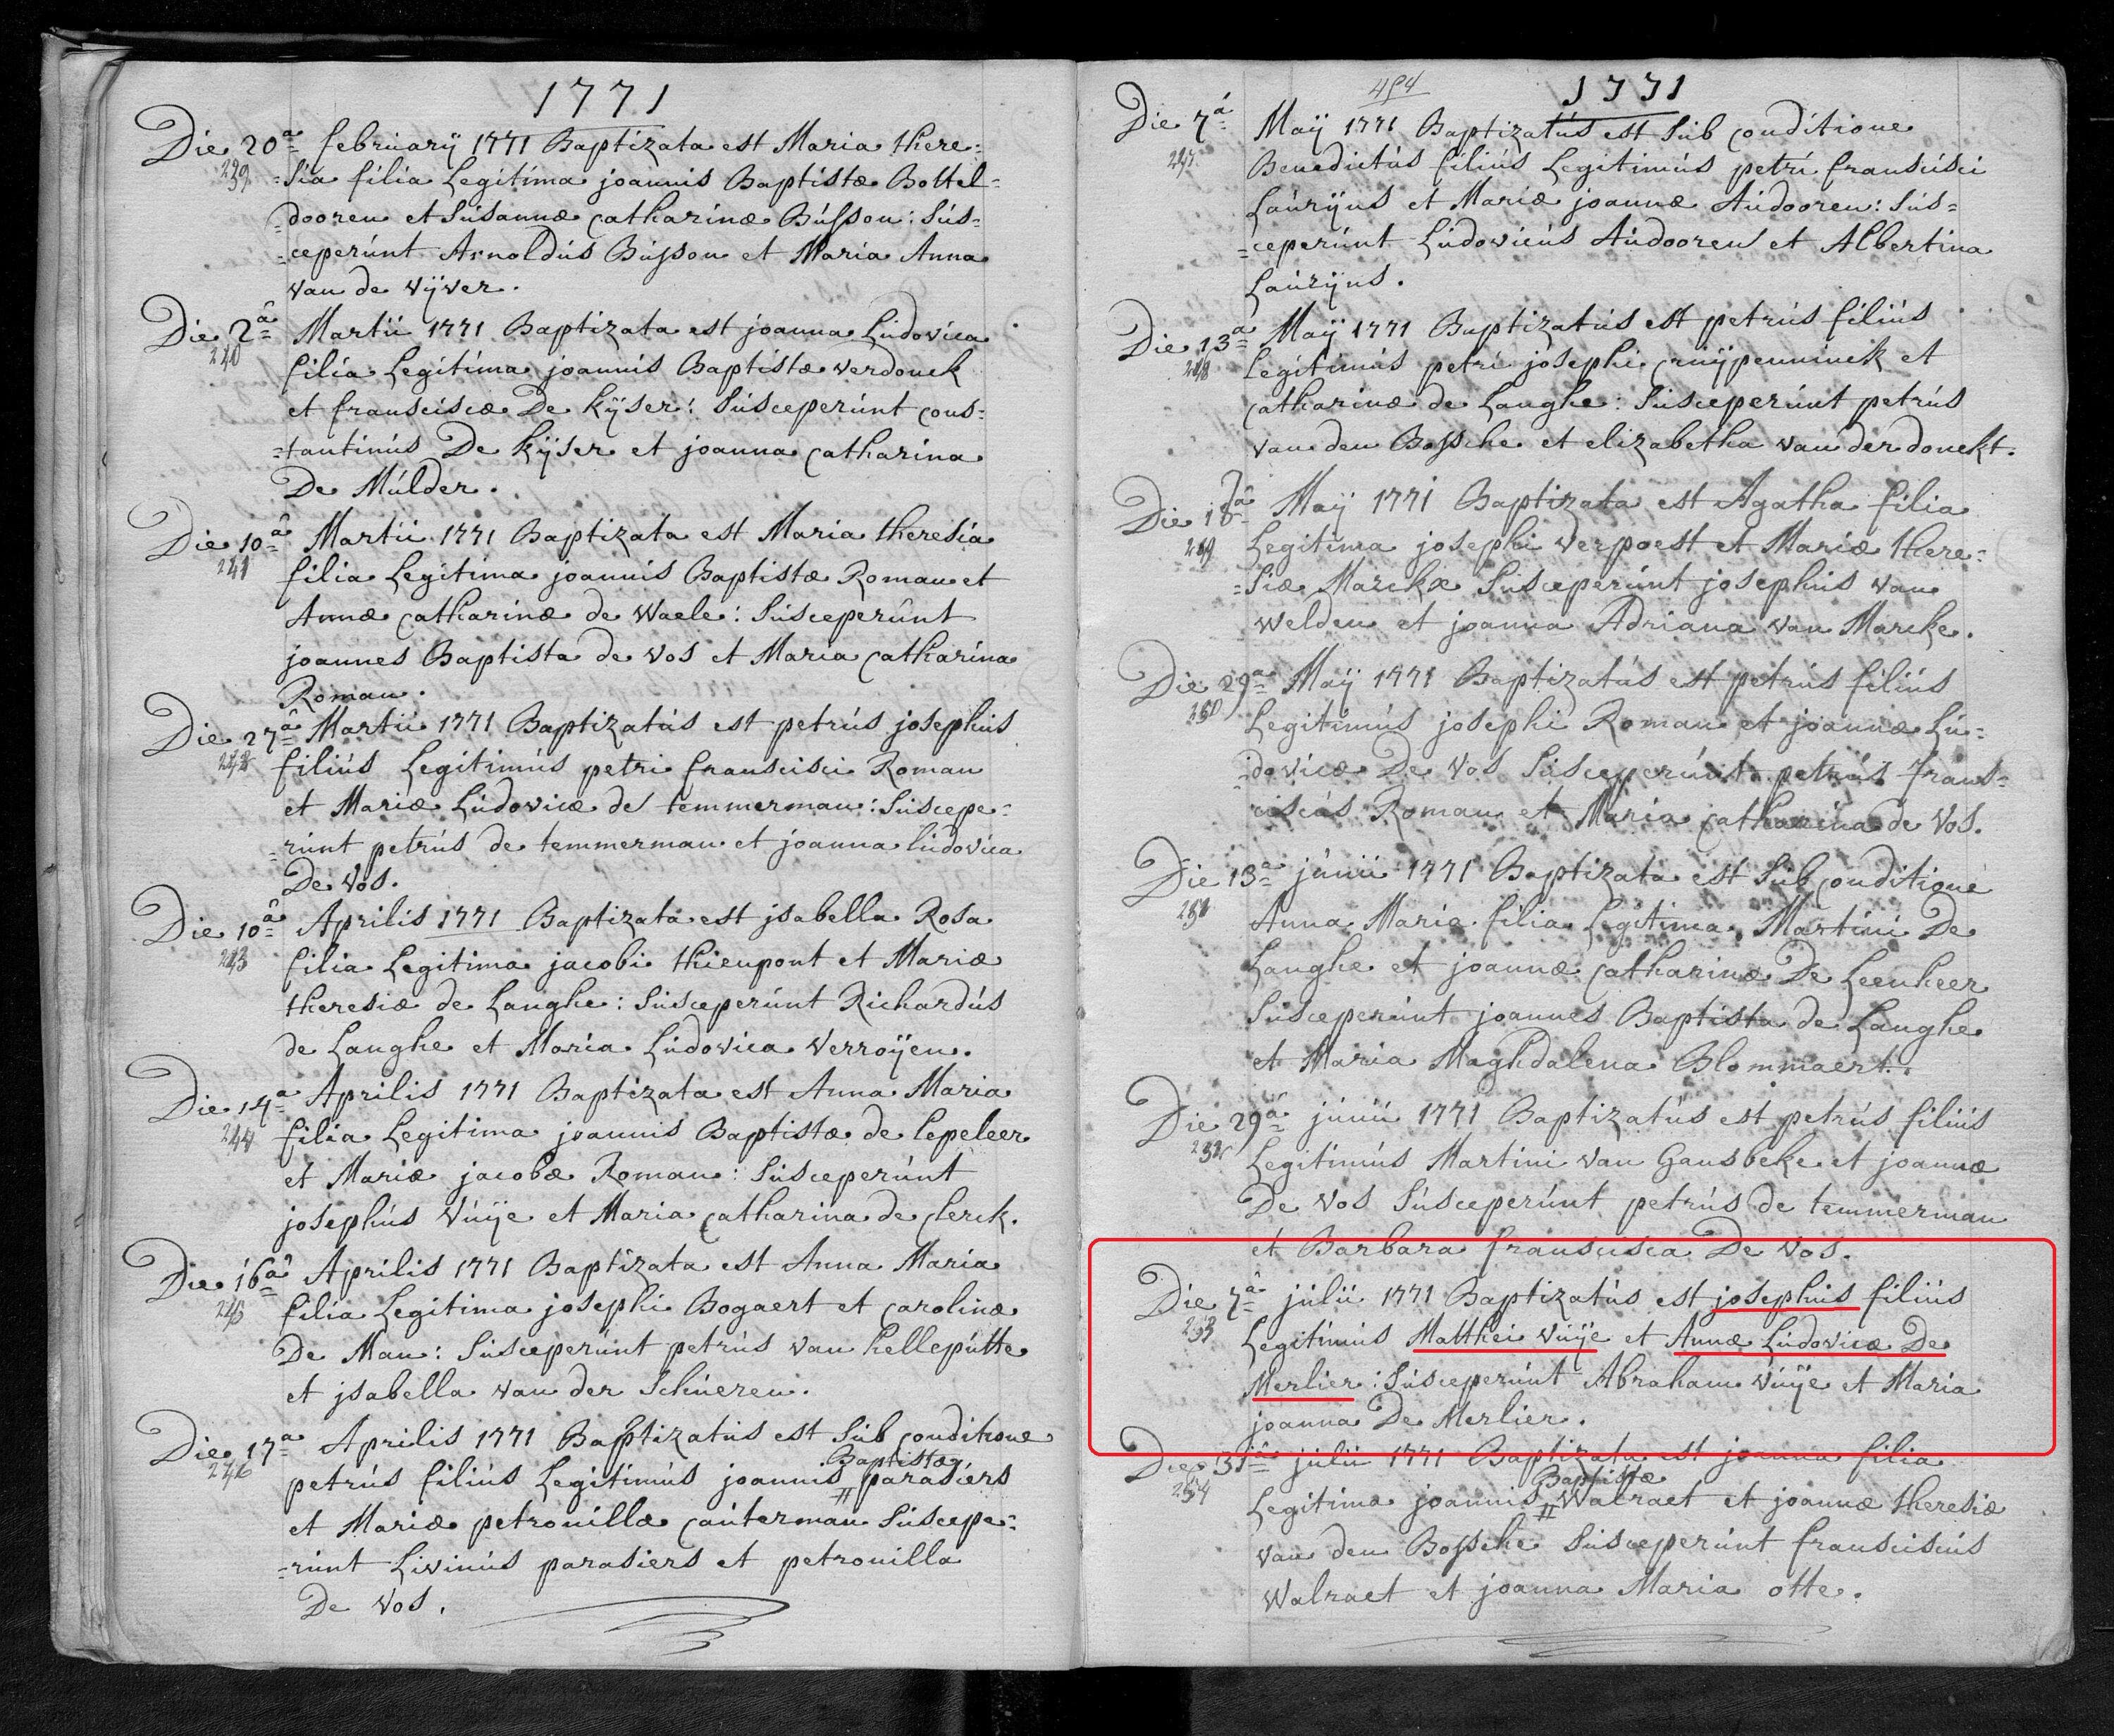 1771
Die 20ª february 1771 Baptizata est Maria there=
239
=sia filia Legitima joannis Baptistæ Bottel=
=dooren et Súsannæ catharinæ Bússon: Sús=
=ceperúnt Arnoldús Bússon et Maria Anna
van de vÿver.
Die 2ª Martii 1771 Baptizata est joanna Ludovica
240
filia Legitima joannis Baptistæ verdonck
et franciscæ De kÿser: Súsceperúnt cons=
=tantinús De kÿser et joanna catharina
De Múlder.
Die 10ª Martii 1771 Baptizata est Maria theresia
241
filia Legitima joannis Baptistæ Roman et
Annæ catharinæ de Waele: Súsceperûnt
joannes Baptista de vos et Maria catharina
Roman.
Die 27ª Martii 1771 Baptizatús est petrús josephús
242
filiús Legitimús petri francisci Roman
et Mariæ Lúdovicæ de temmerman: Súscepe=
=rúnt petrús de temmerman et joanna lúdovica
De Vos.
Die 10ª Aprilis 1771 Baptizata est jsabella Rosa
243
filia Legitima jacobi thienpont et Mariæ
theresiæ de Langhe: Súsceperúnt Richardús
de Langhe et Maria Lúdovica verroÿen.
Die 14ª Aprilis 1771 Baptizata est Anna Maria
244
filia Legitima joannis Baptistæ de lepeleer
et Mariæ jacobæ Roman: Súsceperúnt
josephús Vúÿe et Maria catharina de clerck.
Die 16ª Aprilis 1771 Baptizata est Anna Maria
245
filia Legitima josephi Bogaert et carolinæ
De Man: Súsceperúnt petrús van hellepútte
et jsabella van der Schúeren.
Die 17ª Aprilis 1771 Baptizatús est Súb conditione
246
Baptistæ
petrús filiús Legitimús joannis parasiers
et Mariæ petronillæ caúterman Súscepe=
=rúnt Livinús parasiers et petronilla
De Vos.
494
1771
Die 7ª Maÿ 1771 Baptizatús est Súb conditione
247
Benedictús filiús Legitimús petri francisci
Laúrÿns et Mariæ joannæ Aúdooren: Sús=
=ceperúnt Lúdovicús Aúdooren et Albertina
Laúrÿns.
Die 13ª Maÿ 1771 Baptizatús est petrús filiús
248
Legitimús petri josephi crúÿpenninck et
catharinæ de Langhe: Súsceperúnt petrús
van den Bossche et elizabetha van der donckt.
Die 18ª Maÿ 1771 Baptizata est Agatha filia
249
Legitima josephi verpoest et Mariæ there=
=siæ Marckx Súsceperúnt josephús van
welden et joanna Adriana van Marcke.
Die 29ª Maÿ 1771 Baptizatús est petrús filiús
250
Legitimús josephi Roman et joannæ Lú=
=dovicæ De Vos Súsceperúnt petrús frans=
ciscús Roman et Maria catharina de Vos.
Die 13ª júnii 1771 Baptizata est Súb conditione
251
Anna Maria filia Legitima Martini De
Langhe et joannæ catharinæ De Leenheer
Súsceperúnt joannes Baptista de Langhe
et Maria Maghdalena Blommaert.
Die 29ª júnii 1771 Baptizatús est petrús filiús
252
Legitimús Martini van Gansbeke et joannæ
De Vos Súsceperúnt petrús de temmerman
et Barbara francisca De Vos.
Die 7ª júlii 1771 Baptizatús est josephús filiús
253
Legitimús Matthei vúÿe et Annæ Lúdovicæ De
Merlier: Súsceperúnt Abraham vúÿe et Maria
joanna De Merlier.
Die 31ª júlii 1771 Baptizata est joanna filia
254
Baptistæ
Legitima joannis Walraet et joannæ theresiæ
van den Bossche Súsceperúnt franciscús
Walraet et joanna Maria otte.